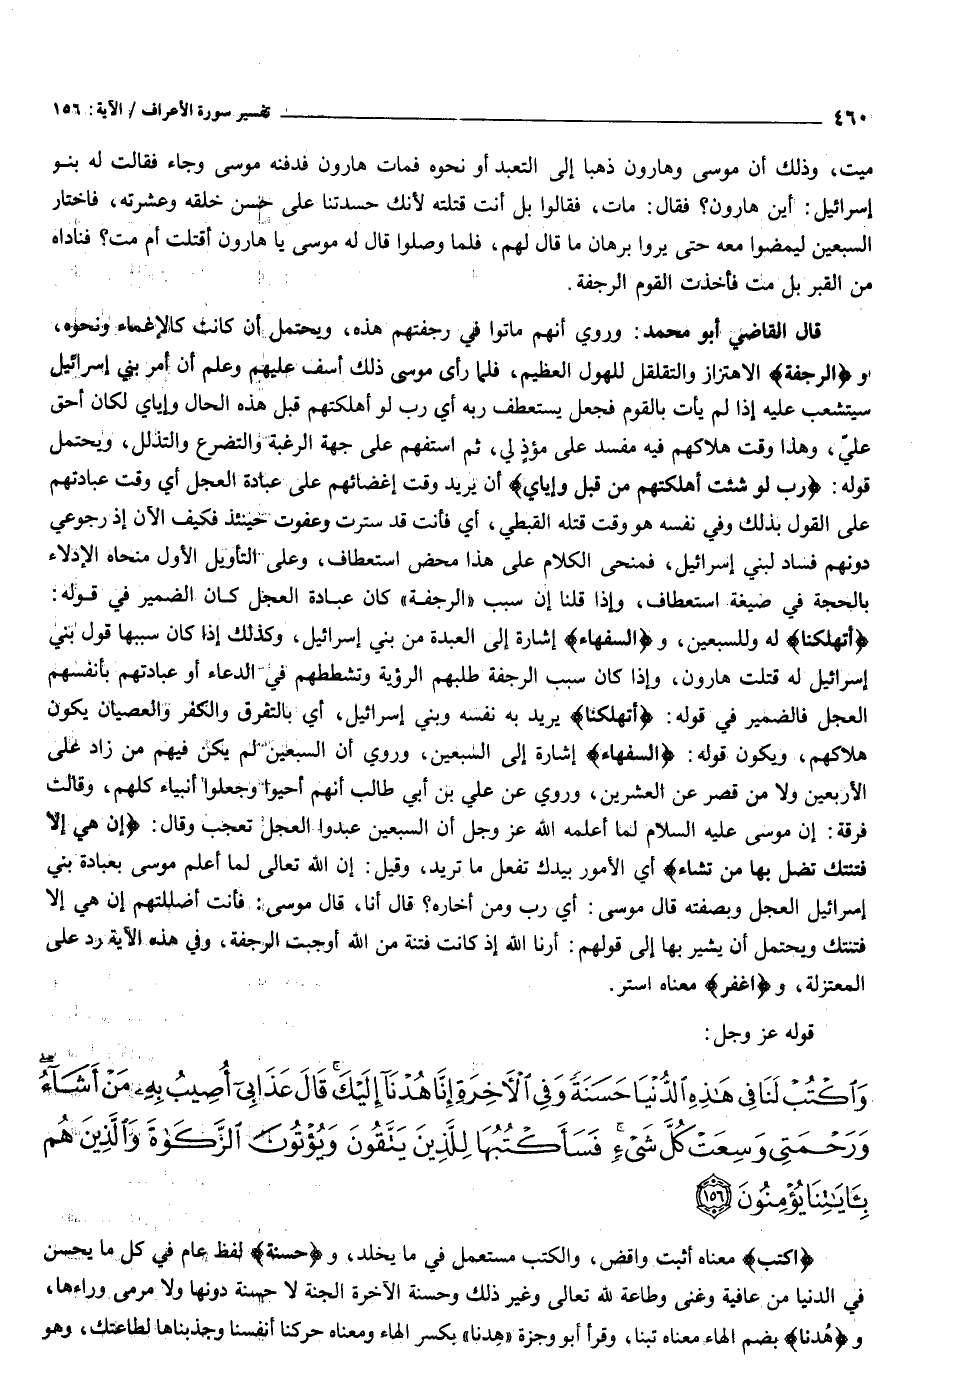 ٤٦٠ تفسير سورة الأعراف / الآية: ١٥٦
ميت، وذلك أن موسى وهارون ذهبا إلى التعبد أو نحوه فمات هارون فدفنه موسى وجاء فقالت له بنو
إسرائيل: أين هارون؟ فقال: مات، فقالوا بل أنت قتلته لأنك حسدتنا على حسن خلقه وعشرته، فاختار
السبعين ليمضوا معه حتى يروا برهان ما قال لهم، فلما وصلوا قال له موسى يا هارون أقتلت أم مت؟ فناداه
من القبر بل مت فأخذت القوم الرجفة.
قال القاضي أبو محمد: وروي أنهم ماتوا في رجفتهم هذه، ويحتمل أن كانت كالإغماء ونحوه،
و ﴿الرجفة﴾ الاهتزاز والتقلقل للهول العظيم، فلما رأى موسى ذلك أسف عليهم وعلم أن أمر بني إسرائيل
سيتشعب عليه إذا لم يأت بالقوم فجعل يستعطف ربه أي رب لو أهلكتهم قبل هذه الحال وإياي لكان أحق
عليّ، وهذا وقت هلاكهم فيه مفسد على مؤذٍ لي، ثم استفهم على جهة الرغبة والتضرع والتذلل، ويحتمل
قوله: ﴿رب لو شئت أهلكتهم من قبل وإياي﴾ أن يريد وقت إغضائهم على عبادة العجل أي وقت عبادتهم
على القول بذلك وفي نفسه هو وقت قتله القبطي، أي فأنت قد سترت وعفوت حينئذ فكيف الآن إذ رجوعي
دونهم فساد لبني إسرائيل، فمنحى الكلام على هذا محض استعطاف، وعلى التأويل الأول منحاه الإدلاء
بالحجة في صيغة استعطاف، وإذا قلنا إن سبب «الرجفة» كان عبادة العجل كان الضمير في قوله:
﴿أتهلكنا﴾ له وللسبعين، و ﴿السفهاء﴾ إشارة إلى العبدة من بني إسرائيل، وكذلك إذا كان سببها قول بني
إسرائيل له قتلت هارون، وإذا كان سبب الرجفة طلبهم الرؤية وتشططهم في الدعاء أو عبادتهم بأنفسهم
العجل فالضمير في قوله: ﴿أتهلكنا﴾ يريد به نفسه وبني إسرائيل، أي بالتفرق والكفر والعصيان يكون
هلاكهم، ويكون قوله: ﴿السفهاء﴾ إشارة إلى السبعين، وروي أن السبعين لم يكن فيهم من زاد على
الأربعين ولا من قصر عن العشرين، وروي عن علي بن أبي طالب أنهم أحيوا وجعلوا أنبياء كلهم، وقالت
فرقة: إن موسى عليه السلام لما أعلمه الله عز وجل أن السبعين عبدوا العجل تعجب وقال: ﴿إن هي إلا
فتنتك تضل بها من تشاء﴾ أي الأمور بيدك تفعل ما تريد، وقيل: إن الله تعالى لما أعلم موسى بعبادة بني
إسرائيل العجل وبصفته قال موسى: أي رب ومن أخاره؟ قال أنا، قال موسى: فأنت أضللتهم إن هي إلا
فتنتك ويحتمل أن يشير بها إلى قولهم: أرنا الله إذ كانت فتنة من الله أوجبت الرجفة، وفي هذه الآية رد على
المعتزلة، و ﴿اغفر﴾ معناه استر.
قوله عز وجل:
وَاَكْتُبْ لَنَا فِى هَٰذِهِ الدُّنْيَا حَسَنَةً وَفِى الْآخِرَةِ إِنَّا هُدْنَآ إِلَيْكَ ۚ قَالَ عَذَابِىٓ أُصِيبُ بِهِۦ مَنْ أَشَآءُ ۖ
وَرَحْمَتِى وَسِعَتْ كُلَّ شَىْءٍ ۚ فَسَأَكْتُبُهَا لِلَّذِينَ يَتَّقُونَ وَيُؤْتُونَ الزَّكَوٰةَ وَالَّذِينَ هُم
بِـَٔايَٰتِنَا يُؤْمِنُونَ ﴿١٥٦﴾
﴿اكتب﴾ معناه أثبت واقض، والكتب مستعمل في ما يخلد، و ﴿حسنة﴾ لفظ عام في كل ما يحسن
في الدنيا من عافية وغنى وطاعة لله تعالى وغير ذلك وحسنة الآخرة الجنة لا حسنة دونها ولا مرمى وراءها،
و ﴿هُدنا﴾ بضم الهاء معناه تبنا، وقرأ أبو وجزة «هِدنا» بكسر الهاء ومعناه حركنا أنفسنا وجذبناها لطاعتك، وهو